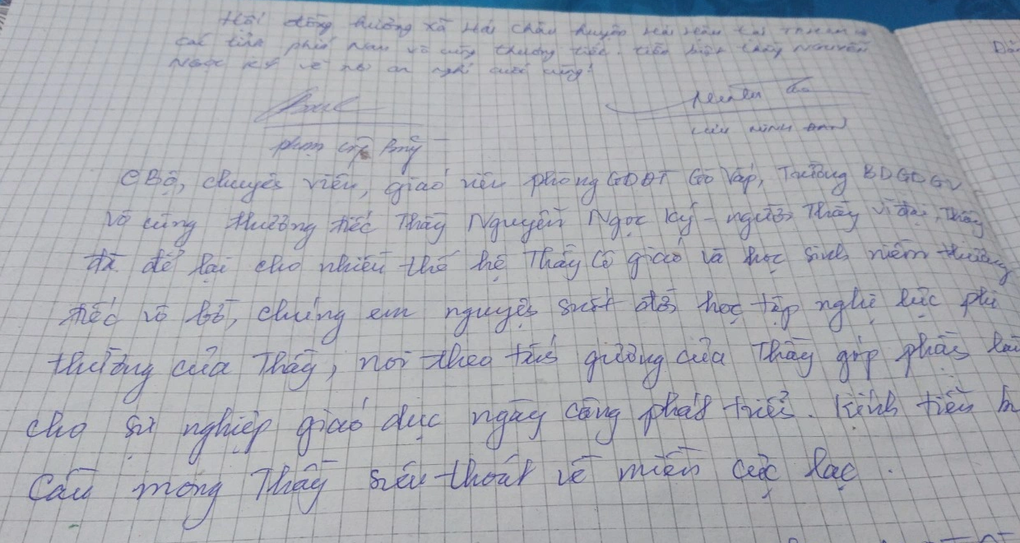 Hội đồng hương xã Hải Châu huyện Hải Hậu tại TPHCM và
các tỉnh phía Nam vô cùng thương tiếc tiễn biệt thầy Nguyễn
Ngọc Ký về nơi an nghỉ cuối cùng!
Phạm
Lưu Minh
CBộ, chuyên viên, giáo viên phòng GDĐT Gò Vấp, Trường BDGDGV
vô cùng thương tiếc Thầy Nguyễn Ngọc Ký - người Thầy vĩ đại, Thầy
đã để lại cho nhiều thế hệ Thầy Cô giáo và học sinh niềm thương
tiếc vô bờ, chúng em nguyện suốt đời học tập nghị lực phi
thường của Thầy, noi theo tấm gương của Thầy góp phần làm
cho sự nghiệp giáo dục ngày càng phát triển. Kính tiễn b
Cầu mong Thầy siêu thoát về miền cực lạc.